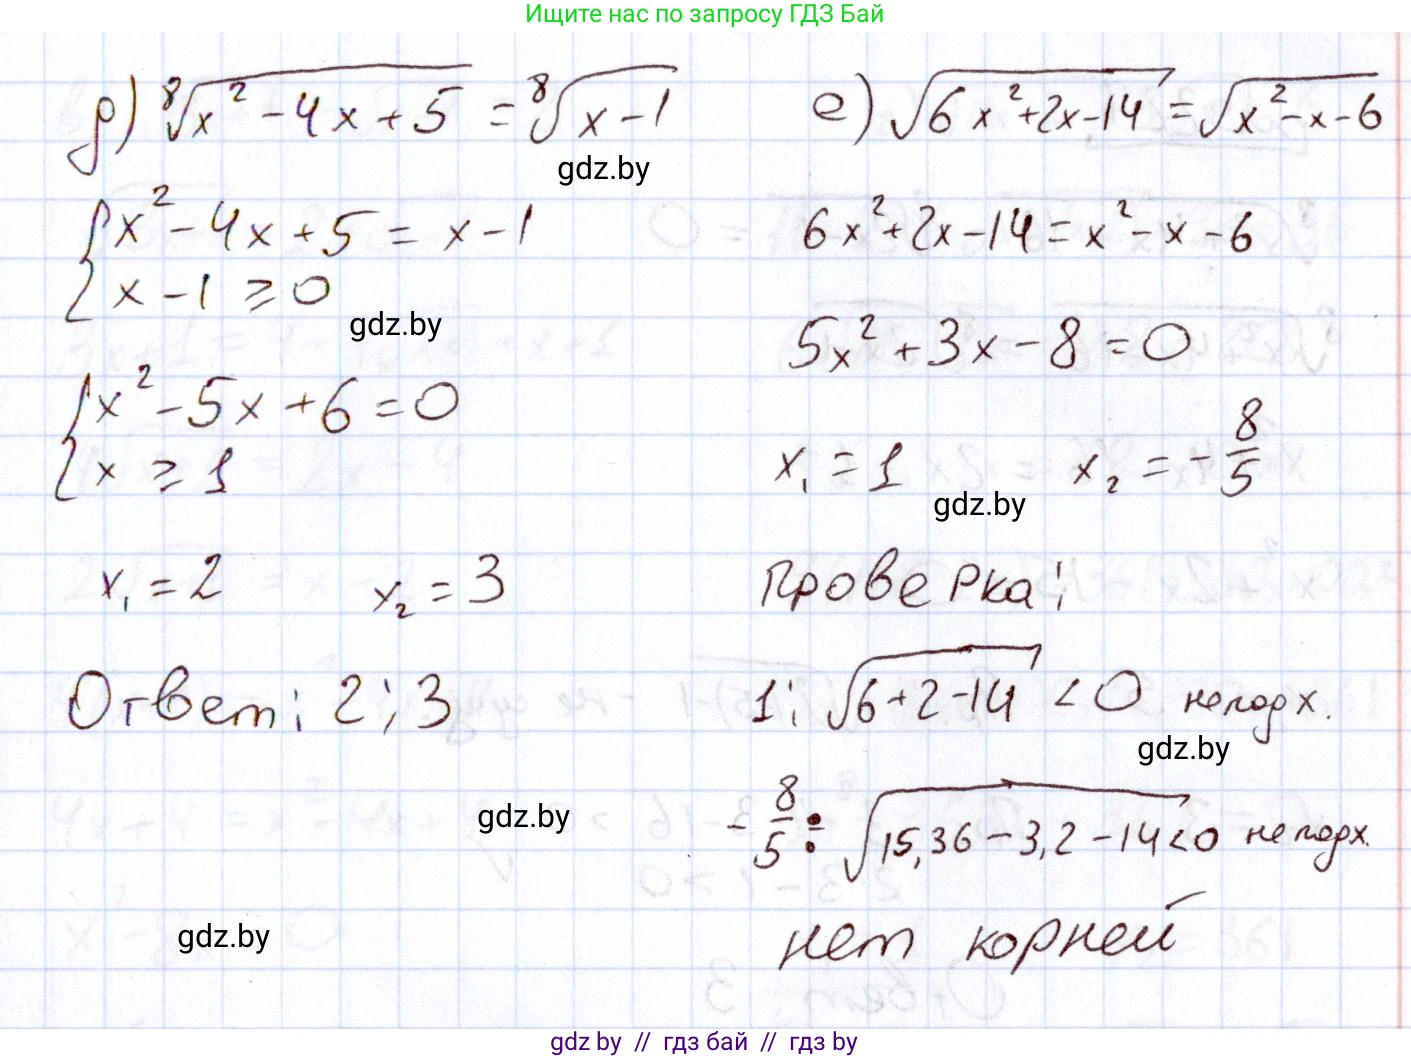 Ищите нас по запросу ГДЗ Бай
д) ⁸√(x² - 4x + 5) = ⁸√(x - 1)
gdz.by
{ x² - 4x + 5 = x - 1
x - 1 ≥ 0
gdz.by
{ x² - 5x + 6 = 0
x ≥ 1
x₁ = 2 x₂ = 3
Ответ: 2; 3
gdz.by
gdz.by
е) √(6x² + 2x - 14) = √(x² - x - 6)
6x² + 2x - 14 = x² - x - 6
5x² + 3x - 8 = 0
x₁ = 1 x₂ = - 8/5
gdz.by
Проверка:
1: √(6 + 2 - 14) < 0 не подх.
gdz.by
- 8/5 : √(15,36 - 3,2 - 14 < 0 не подх.
нет корней
gdz.by // гдз бай // гдз by